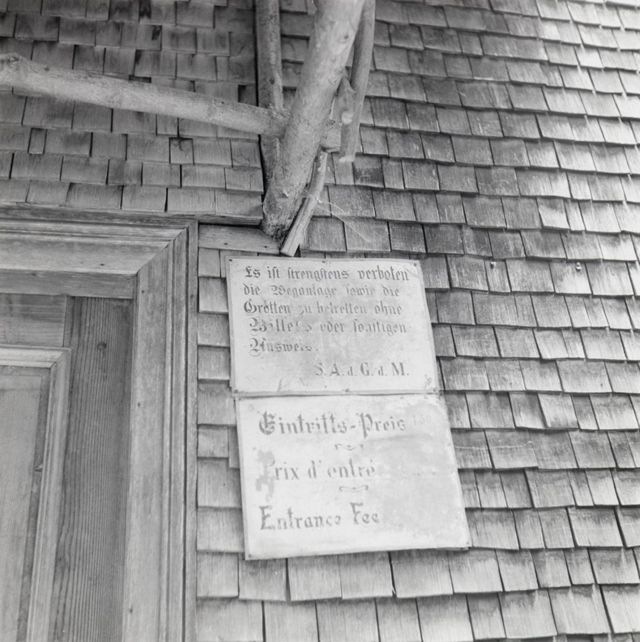 Es ist strengstens verboten
die Weganlage sowie die
Grotten zu betreten ohne
Billets oder sonstigen
Ausweis.
S.A.d.G.d.M.
Eintritts-Preis
Prix d'entré
Entrance Fee